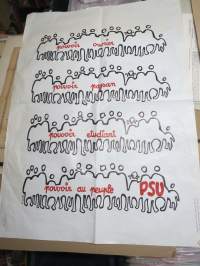 pouvoir ouvrier
pouvoir paysan
pouvoir etudiant
pouvoir au peuple PSU